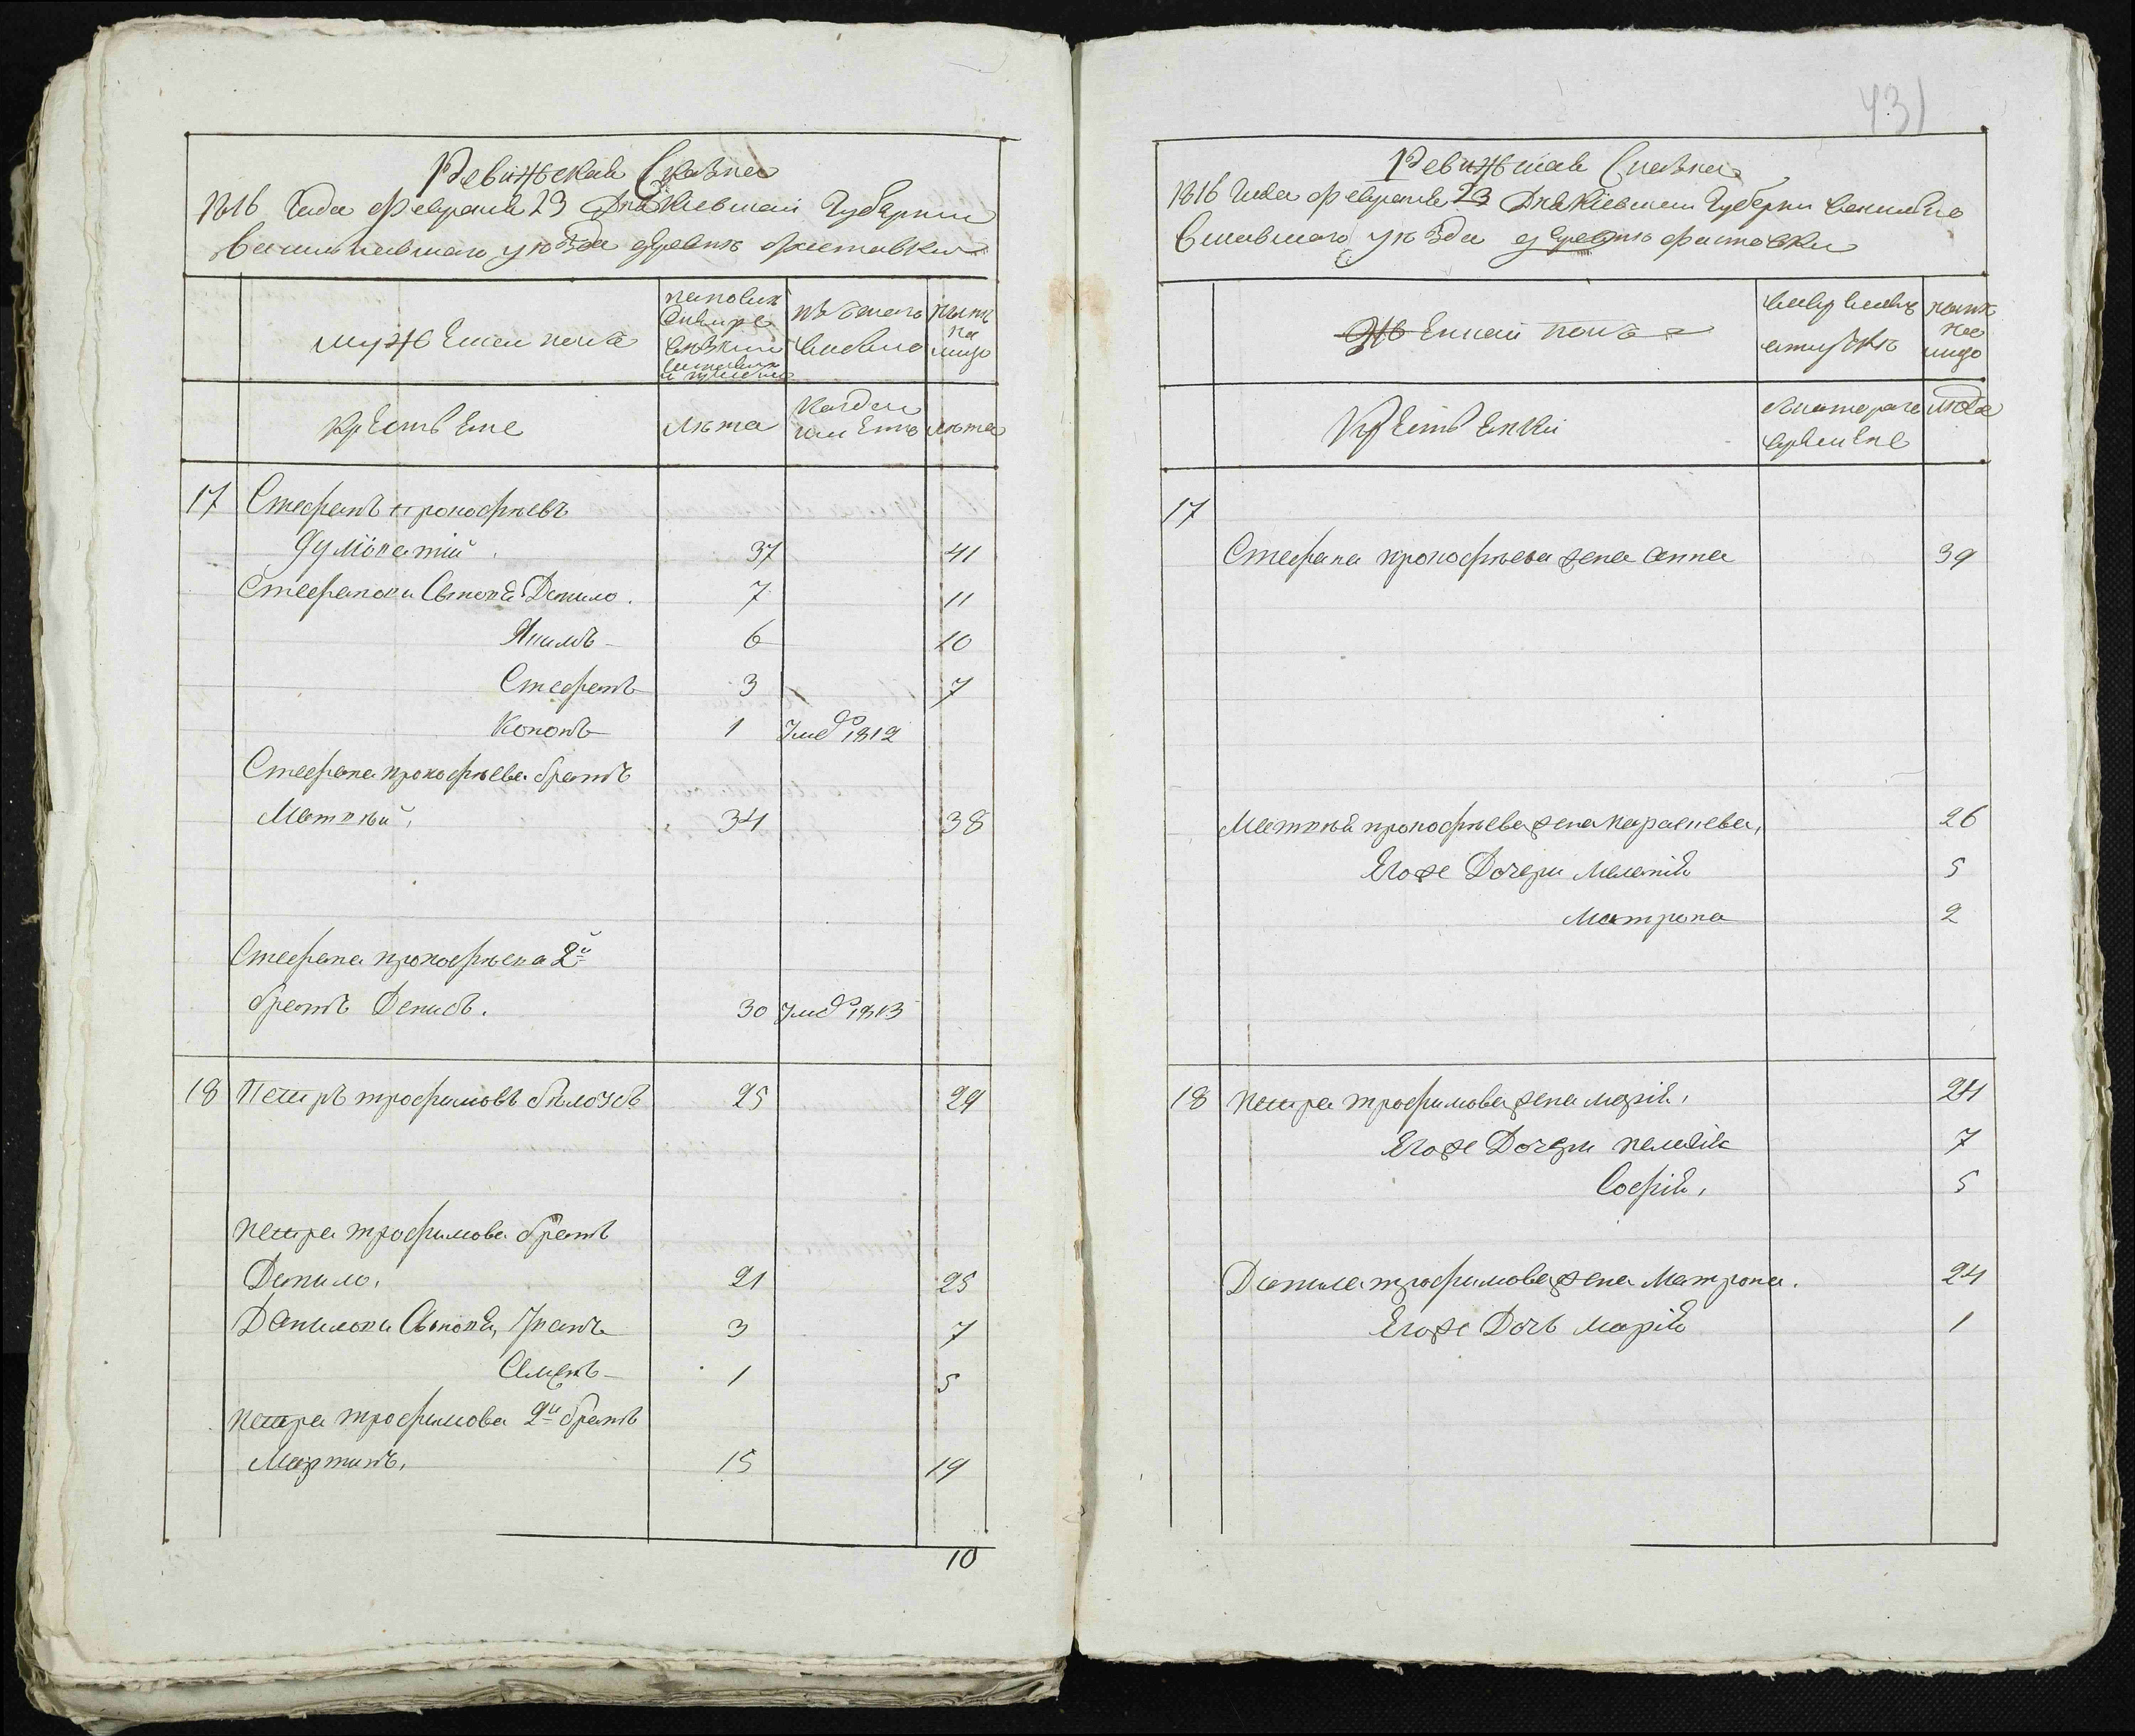 Ревижская Сказка
1816 Года февраля 23 Дня Киевской Губернии
Васильковского уезда деревне Фастовки
мужеской полъ
крестьяне
Лѣта
лѣта
17 Стефанъ прокофьевъ
37 41
Стефановы Сыновья Данило. 7 11
Якимъ 6 10
Стефанъ 3 7
Кононъ 1 Уме 1812
Стефана прокофьева братъ
Матвѣй, 34 38
Стефана прокофьева 2й
братъ Денисъ. 30 Уме 1813
18 Петръ трофимовъ бѣлоусъ 25 29
петра трофимова братъ
Данило, 21 25
Данилови Сыновья, Иванъ 3 7
Семенъ 1 5
петра трофимова 2й братъ
Мартинъ, 15 19
10
431
Ревижская Сказка
1816 Года февраля 23 Дня Киевской Губерни Василь
ковского уезда деревне Фастовки
Женской полъ
Крестьянки
17
Стефана прокофьева жена анна 39
Матвѣя прокофьева жена парасkева, 26
Егоже Дочери Меланiя 5
Матрона 2
18 петра трофимова жена марiя, 24
Егоже Дочери пелагiя 7
Софiя, 5
Данила трофимова жена Матрона. 24
Егоже Дочь марiя 1